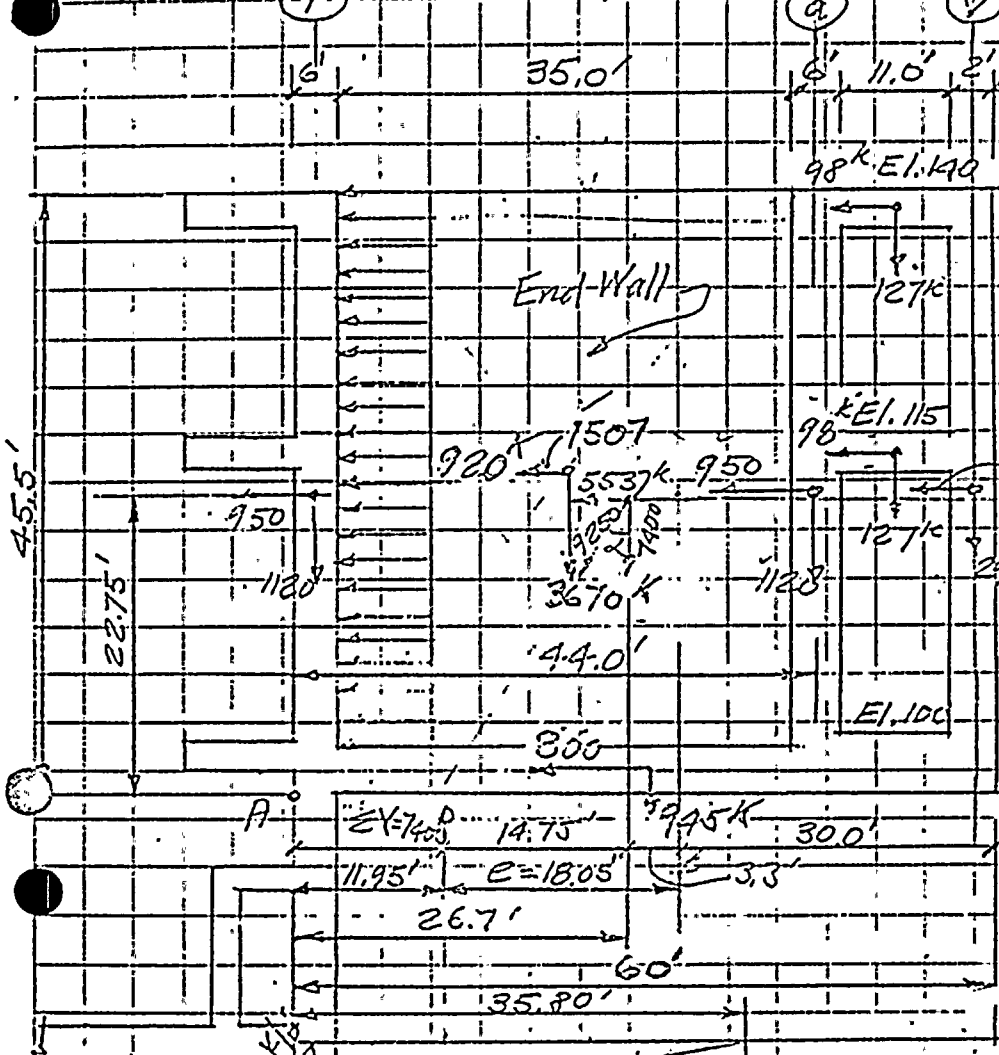 a
6' 35.0' 6' 11.0' 2'
98K El.140
127K
End Wall
98K El.115
1507
920 5537K 950
950 9250 7400 127K
1120 3670K 1120
45.5'
22.75'
44.0'
El.100
800
A ΣY=7400 14.75' 945K 30.0'
11.95' e=18.05' 3.3'
26.7'
60'
35.80'